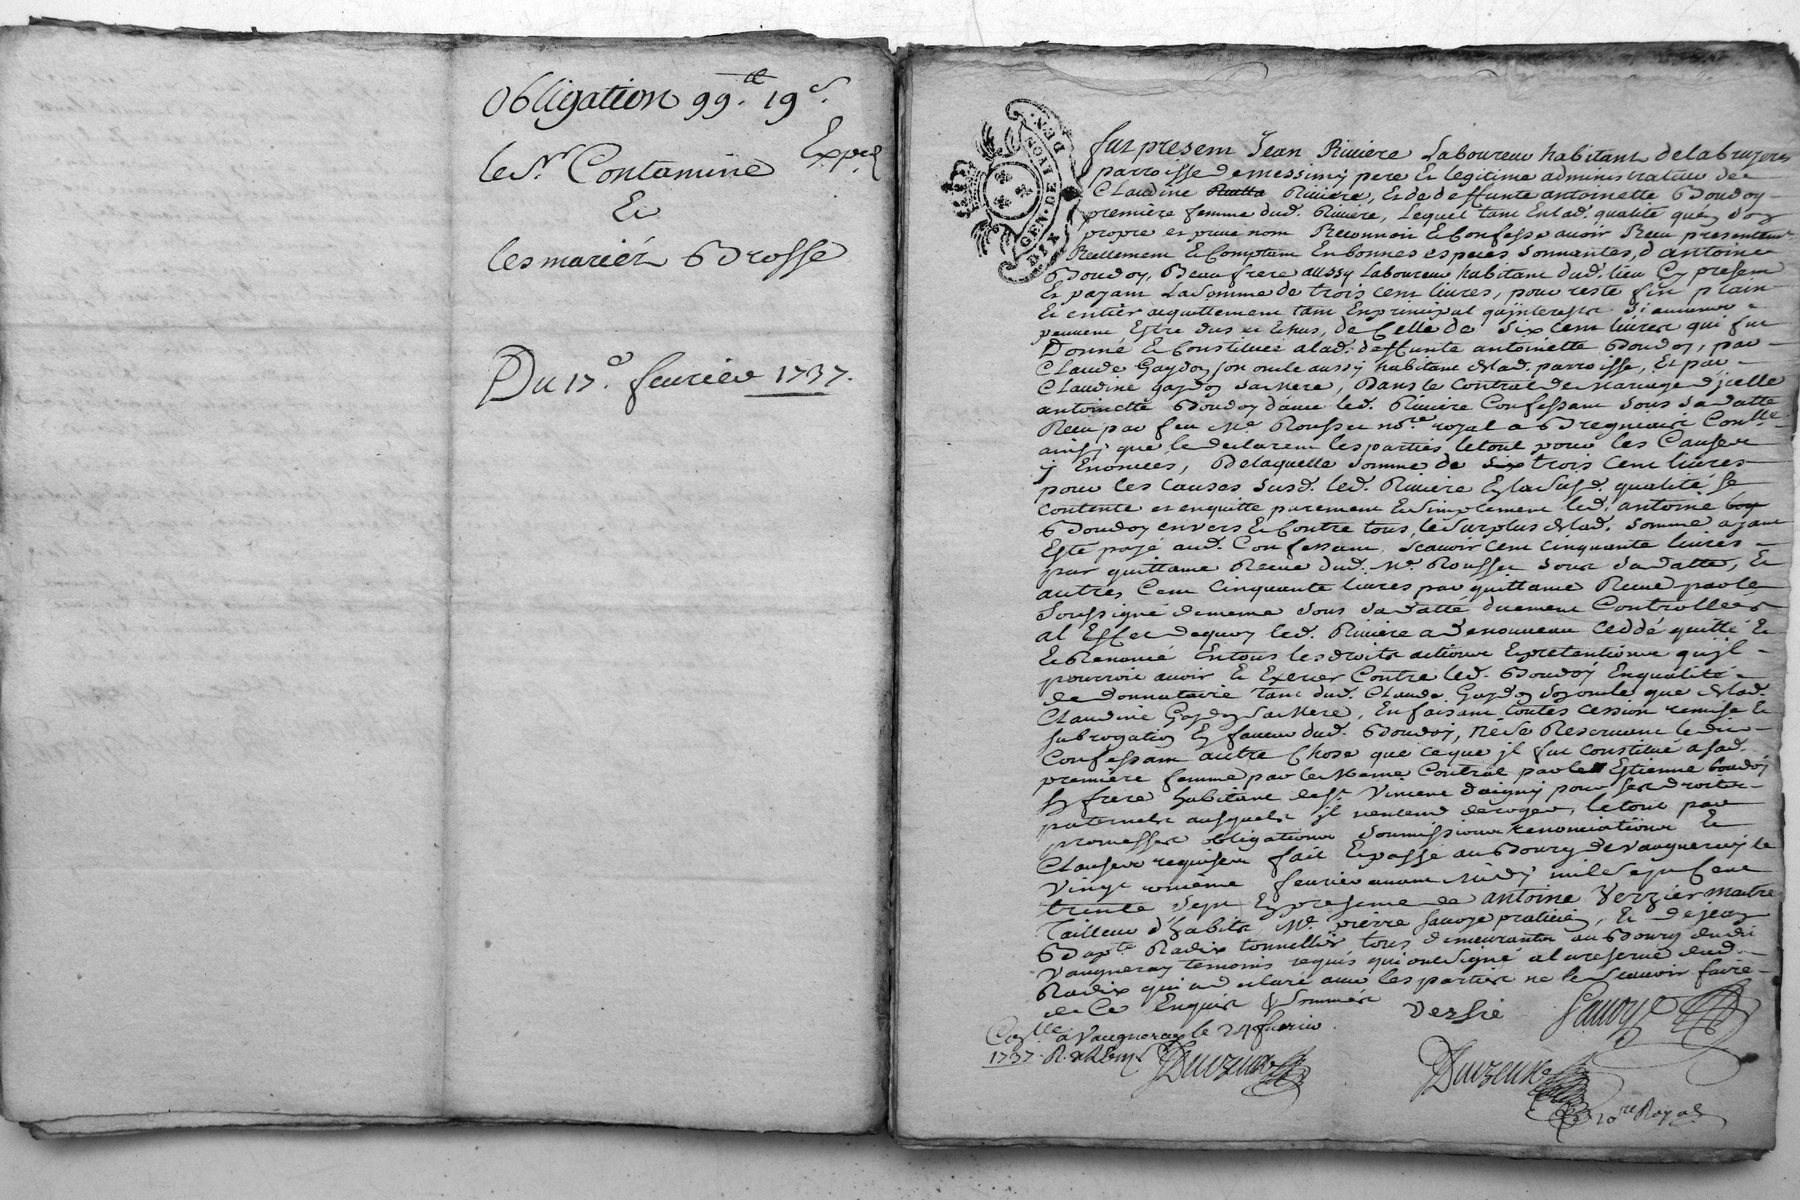 Obligation 99.ᵗᵗ 19ˢ.
Exped
le Sʳ Contamine
Et
les mariéz Brosse
Du 17ᵉ. feurier 1737.
GEN. DE LYON
DIX DEN
fut present Jean Riuiere Laboureur habitant de labruyere
parroisse de messimy pere et legitime administrateur de
Claudine Riuiere, et de deffunte antoinette Boudoy
premiere femme dud. Riuiere, Lequel tant en lad. qualité que de son
propre et priué nom Reconnoit et Confesse auoir Receu presentemt
Reellement et Comptant En bonnes especes sonnantes, d'antoine
Boudoy, Beau frere aussy Laboureur habitant dud. lieu Cy present
Et payant La somme de trois cent liures, pour reste fin plain
Et entier aquittement tant En principal qu'interestz si aucuns
peuuent Estre dus et Echus, de Celle de Six cent liures qui fut
Donné et Constituée a lad. deffunte antoinette Boudoy, par
Claude Gaydon son oncle aussy habitant de lad. parroisse, Et par
Claudine gaydon sa mere, Dans le Contrat de Mariage d'jcelle
antoinette Boudoy d'auec led. Riuiere Confessant sous sa datte
Receu par feu Mᵉ Rousset noʳᵉ royal a Contˡˡᵉ
ainsy que le declarent les parties le tout pour les Causes
y Enoncees, De laquelle somme de six trois cent liures
pour les causes susd. led. Riuiere En la susd. qualité se
contente et en quitte purement et simplement led. antoine boy
Boudoy enuers et Contre tous, le surplus de lad. somme ayant
Esté payé aud. Confessant, scauoir cent cinquante liures
par quittance Receue dud. Mᵉ Rousset sous sa datte, Et
autres Cent Cinquante liures par quittance Receue par le
Soussigné de meme sous sa datté duement Controllees
al Effet dequoy led. Riuiere a de nouueau ceddé quitté Et
Et Renoncé En tous les droits actions et pretentions qu'jl
pourroit auoir Et Exercer Contre led. Boudoy En qualité
de donnataire tant dud. Claude Gaydon son oncle que de lad.
Claudine Gaydon sa Mere, En faisant toutes cession remise Et
subrogation En faueur dud. Boudoy, Ne se Reseruant ledit
Confessant autre Chose que ce que jl fut constitué a sad.
premiere femme par le Meme Contrat par le Estienne boudoy
sy frere habitant de Sᵗ Vincent d'aigny pour ses droits
paternels ausquels jl n'entend deroger, le tout par
promesses obligations soumissions renonciations Et
Clauses requises fait Et passé au Bourg de Vaugneray le
Vingt unieme feurier auant Midy mil sept Cent
trente sept En presence de antoine Verzier maitre
Tailleur d'habits, Mᵉ pierre Sauoye praticien, Et de jean
Baptᵉ Radix tonnellier tous demeurants au Bourg dudit
Vaugneray temoins requis qui ont signé a la reserue dud.
Radix qui a declaré auec les parties ne le scauoir faire
de Ce Enquis & sommés
Verzie Sauoye
Conˡˡᵉ a Vaugneray le 24 feurier
1737.
noʳᵉ Royal